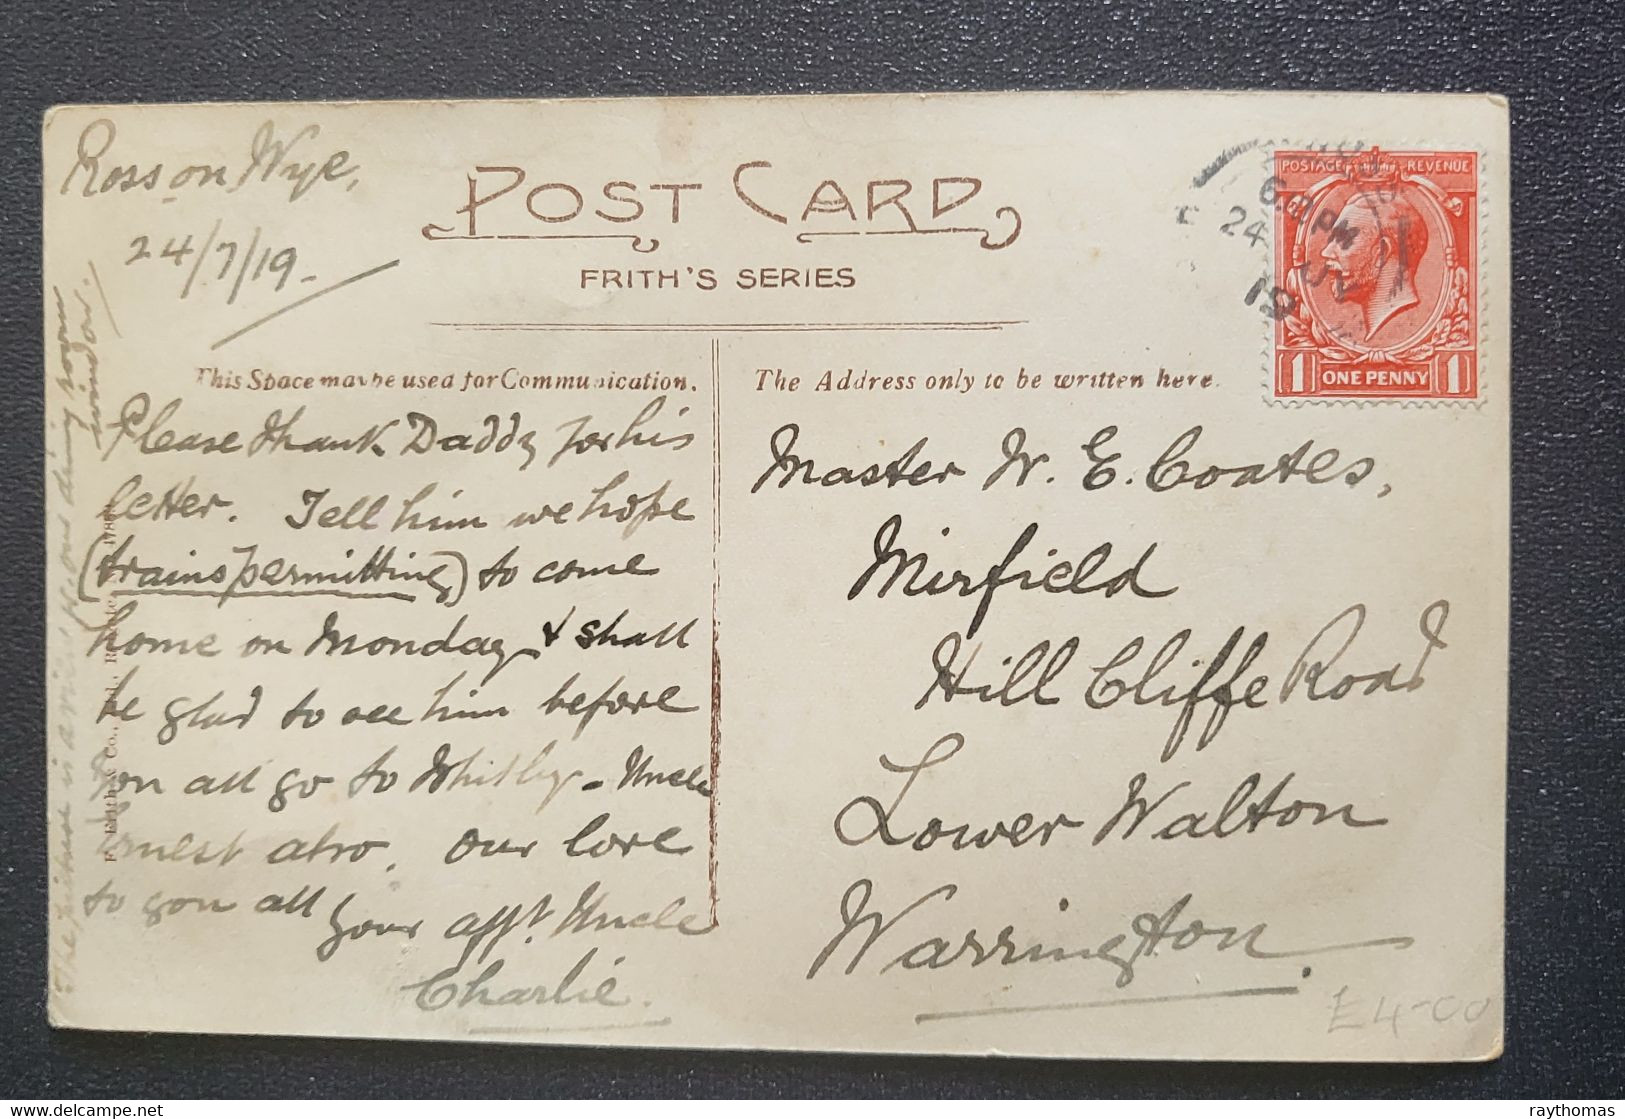 Ross on Wye,
24/7/19.
POST CARD
FRITH'S SERIES
This Space may be used for Communication.
The Address only to be written here.
Please thank Daddy for his
letter. Tell him we hope
(trains permitting) to come
home on Monday & shall
be glad to see him before
you all go to Whitby - Uncle
Ernest also. Our love
to you all
Your afft. Uncle
Charlie.
The picture is a view from our dining room
window.
Master W. E. Coates,
Mirfield
Hill Cliffe Road
Lower Walton
Warrington.
POSTAGE REVENUE
1 ONE PENNY 1
24 JL
19
£4-00
delcampe.net
raythomas